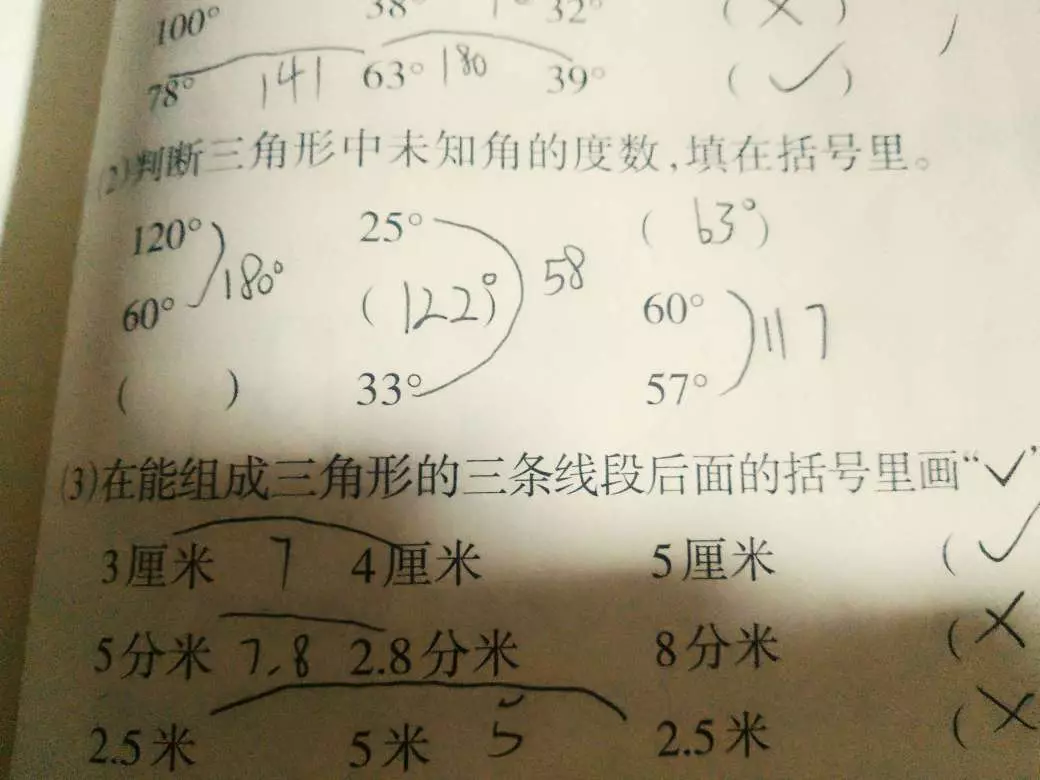 100° 38° 32° (×)
78° 141 63° 180 39° (✓)
(2)判断三角形中未知角的度数,填在括号里。
120° 25° (63°)
180° 58
60° (122°) 60°
117
( ) 33° 57°
(3)在能组成三角形的三条线段后面的括号里画“✓”
3厘米 7 4厘米 5厘米 (✓
5分米 7.8 2.8分米 8分米 (×
2.5米 5米 5 2.5米 (×